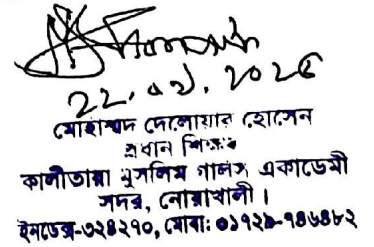 22.01.2026
মোহাম্মদ দেলোয়ার হোসেন
প্রধান শিক্ষক
কালীতারা মুসলিম গালস একাডেমী
সদর, নোয়াখালী।
ইনডেক্স-৩২৪২৭০, মোবা: ০১৭২৯-৭৪৬৪৮২